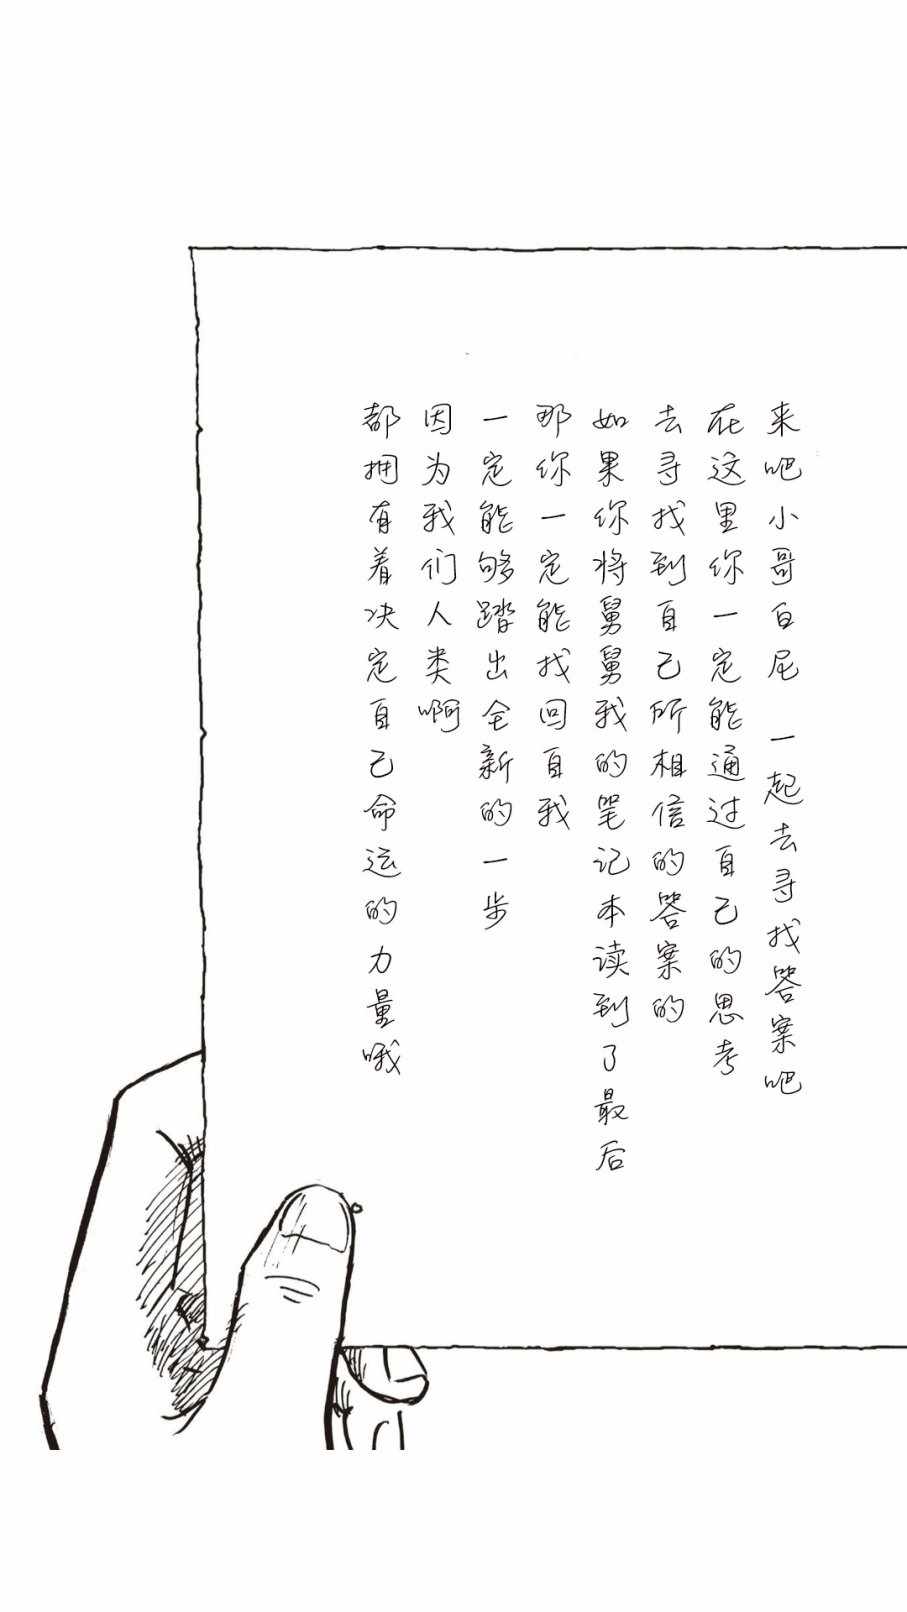 来吧小哥白尼 一起去寻找答案吧
在这里你一定能通过自己的思考
去寻找到自己所相信的答案的
如果你将舅舅我的笔记本读到了最后
那你一定能找回自我
一定能够踏出全新的一步
因为我们人类啊
都拥有着决定自己命运的力量哦